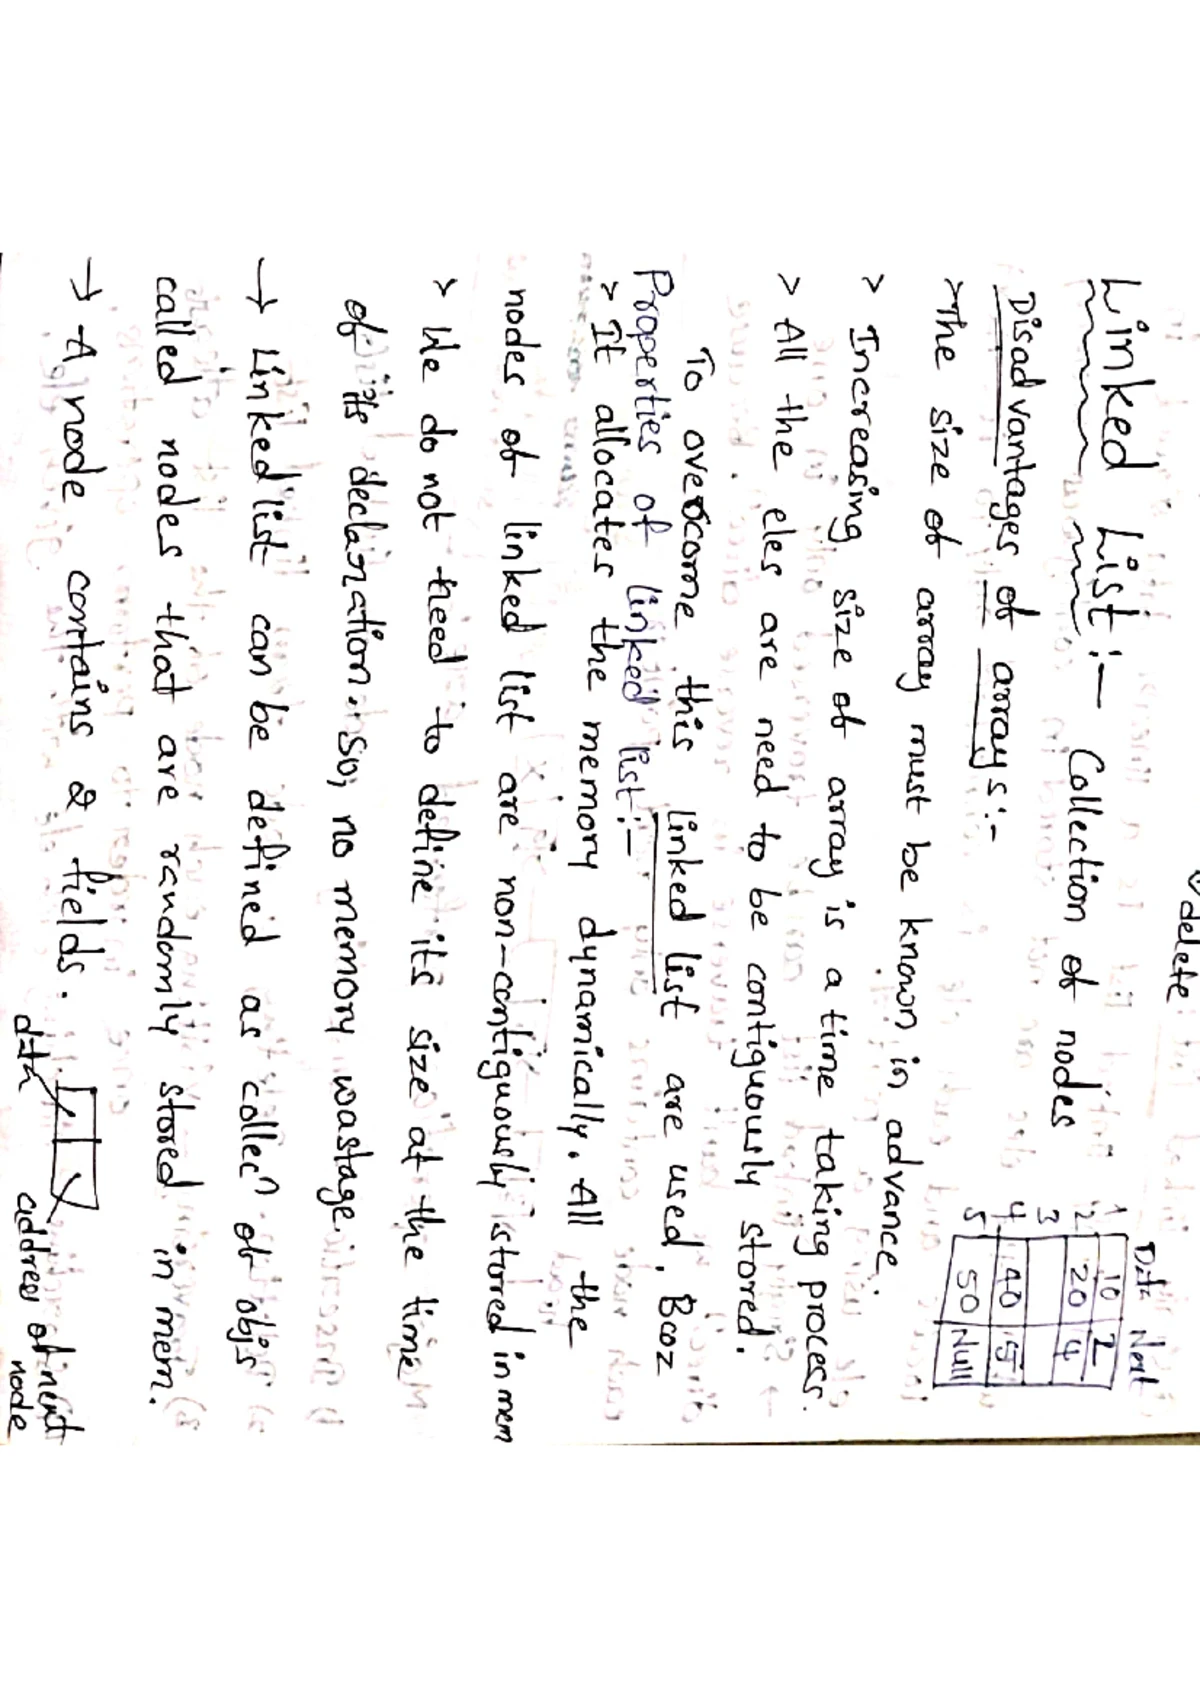 delete
Linked List :- Collection of nodes
Data Next
1 10 2
2 20 4
3
4 40 5
5 50 Null
Disadvantages of arrays :-
> The size of array must be known in advance.
> Increasing size of array is a time taking process.
> All the eles are need to be contiguously stored.
To overcome this linked list are used. Bcoz
Properties of linked list :-
> It allocates the memory dynamically. All the
nodes of linked list are non-contiguously stored in mem
> We do not need to define its size at the time
of its declaration. So, no memory wastage.
→ Linked list can be defined as collecⁿ of objs
called nodes that are randomly stored in mem.
→ A node contains 2 fields.
data
address of next
node